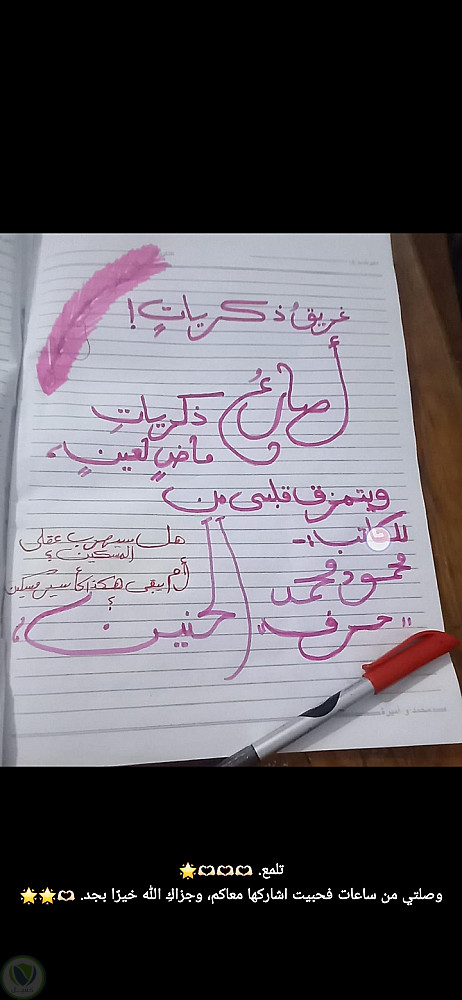 غريقُ ذكرياتٍ!
أصارعُ ذكرياتِ
ماضٍ لعينٍ،
ويتمزق قلبي من
الحنين،
هل سيهرب عقلي
المسكين؟
أم يبقى هكذا كأسير مسكين
؟
للكاتب:-
محمود محمد
"حرف"
محمد و أميرة
تلمع. 🫶🫶🫶🌟
وصلتي من ساعات فحبيت اشاركها معاكم، وجزاكِ الله خيرًا بجد. 🫶🌟🌟